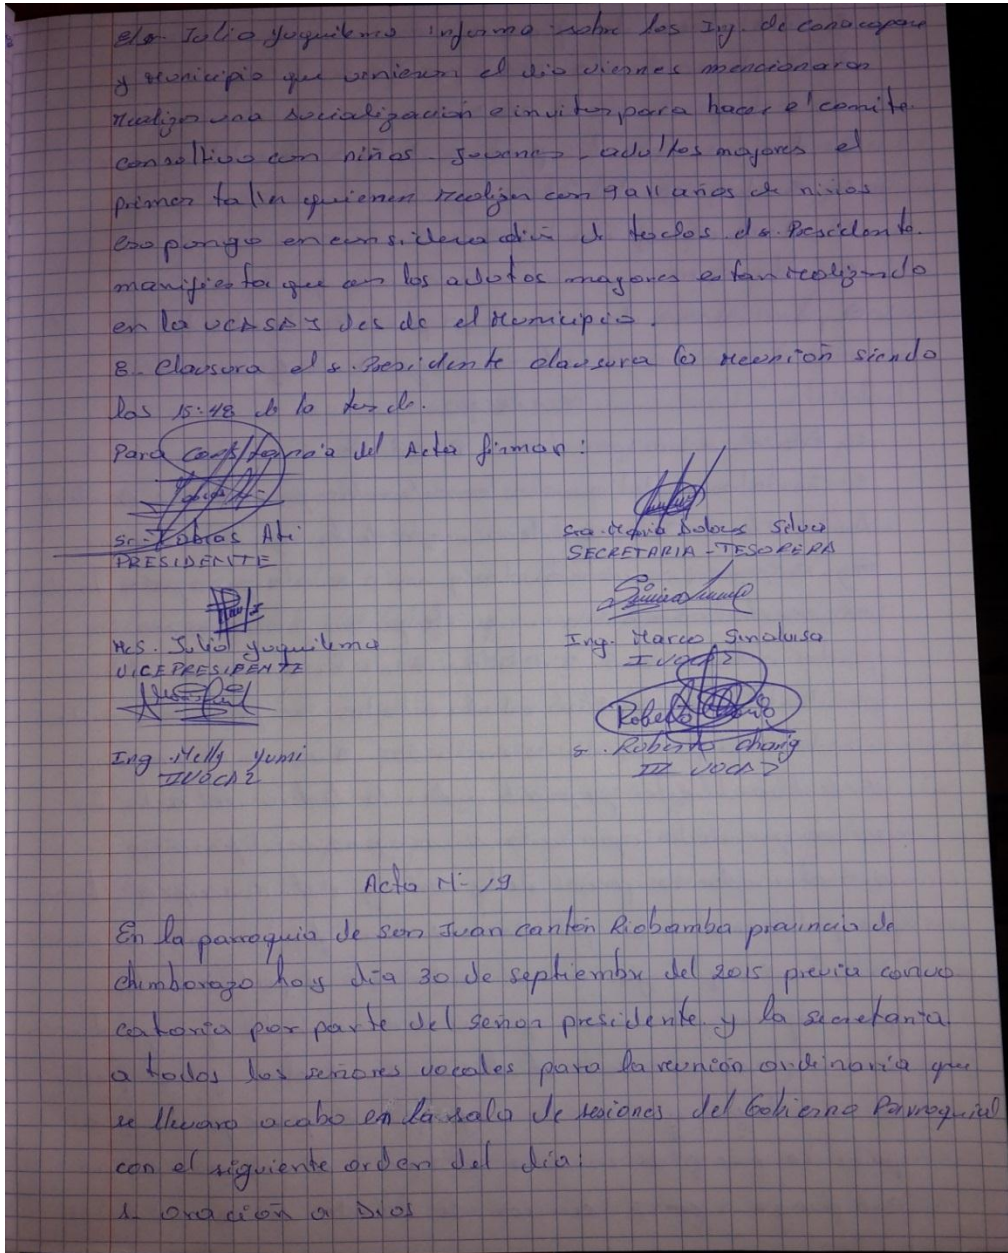 el sr. Julio yuquilema informa sobre los Ing. de conacopare
y Municipio que vinieron el dia viernes mencionaron
realizo una socialización e invitar para hacer el comite
consultivo con niños - jovenes - adultos mayores el
primer taller quieren realizar con 9 a 11 años de niños
eso pongo en consideración de todos. el s. Presidente.
manifiesta que con los adutos mayores estan realizando
en la UCASAJ des de el Municipio.
8- Clausura el s. Presidente clausura la reunión siendo
las 15:48 de la tarde.
Para constancia del Acta firman:
Sr. Tobias Ati
PRESIDENTE
Sra. Maria Dolores Silva
SECRETARIA - TESORERA
Ms. Julio yuquilema
VICEPRESIDENTE
Ing. Marco Sinaluisa
I VOCAL
Ing. Nelly yumi
II VOCAL
Roberto
s. Roberto chang
III VOCAL
Acta N- 19
En la parroquia de san Juan cantón Riobamba provincia de
chimborazo hoy día 30 de septiembre del 2015 previa convo
catoria por parte del señor presidente y la secretaria
a todos los señores vocales para la reunión ordinaria que
se llevara acabo en la sala de sesiones del Gobierno Parroquial
con el siguiente orden del día:
1- oración a Dios